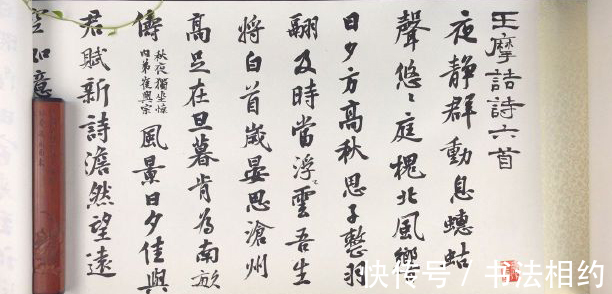 王摩詰詩六首
夜静群動息蟪蛄
聲悠々庭槐北風響
日夕方高秋思子整羽
翮及時當浮雲吾生
將白首歲晏思滄州
高足在旦暮肯為南畝
儔
秋夜獨坐懷
内弟崔興宗
風景日夕佳與
君賦新詩澹然望遠
空如意
快传号 / 书法相约